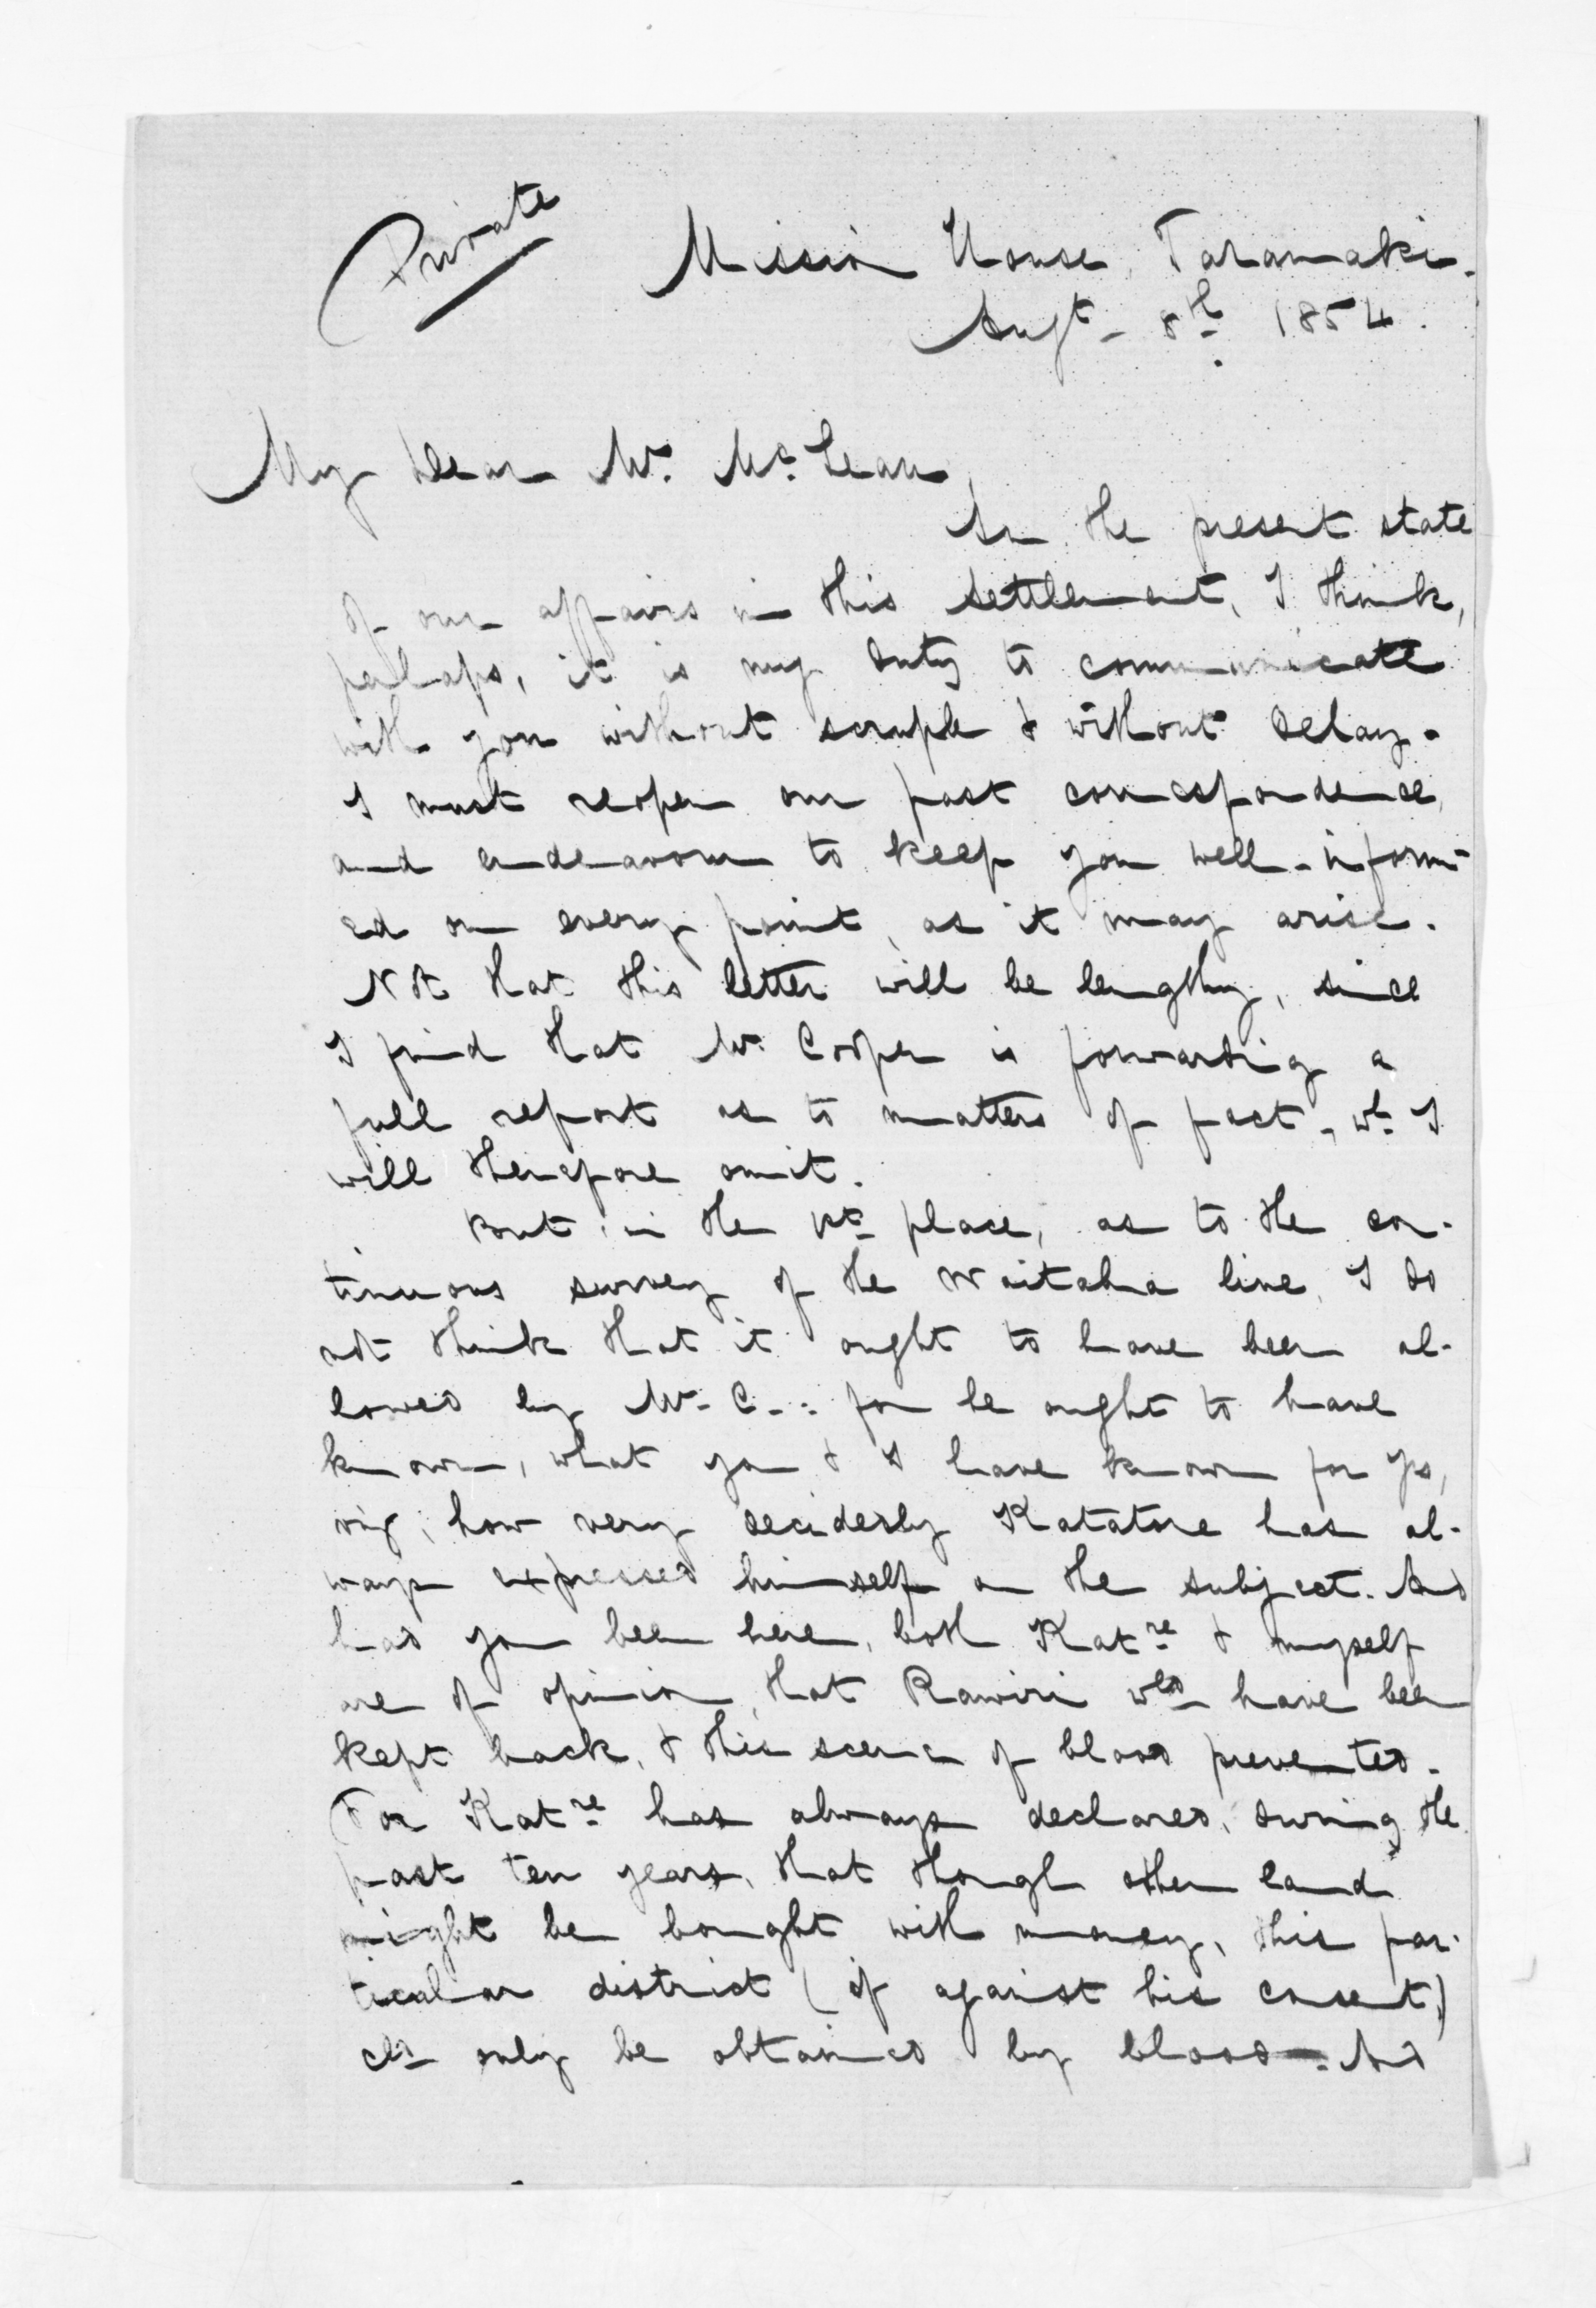 Private
Mission House, Taranaki.
Augt. 8th 1854.
My dear Mr. McLean,
In the present state
of our affairs in this settlement, I think,
perhaps, it is my duty to communicate
with you without scruple & without delay.
I must reopen our past correspondence,
and endeavour to keep you well-inform-
ed on every point, as it may arise.
Not that this letter will be lengthy, since
I find that Mr. Cooper is forwarding a
full report as to matters of fact, wh. I
will therefore omit.
But in the 1st place, as to the con-
tinuous survey of the Waitaha line, I do
not think that it ought to have been al-
lowed by Mr. C.: for he ought to have
known, what you & I have known for yrs,
viz; how very decidedly Katatore has al-
ways expressed himself on the subject. And
had you been here, both Katre & myself
are of opinion, that Rawiri wld have been
kept back, & this scene of blood prevented.
For Katre has always declared, during the
past ten years, that though other land
might be bought with money, this par-
ticular district (if against his consent,)
cld only be obtained by blood. And